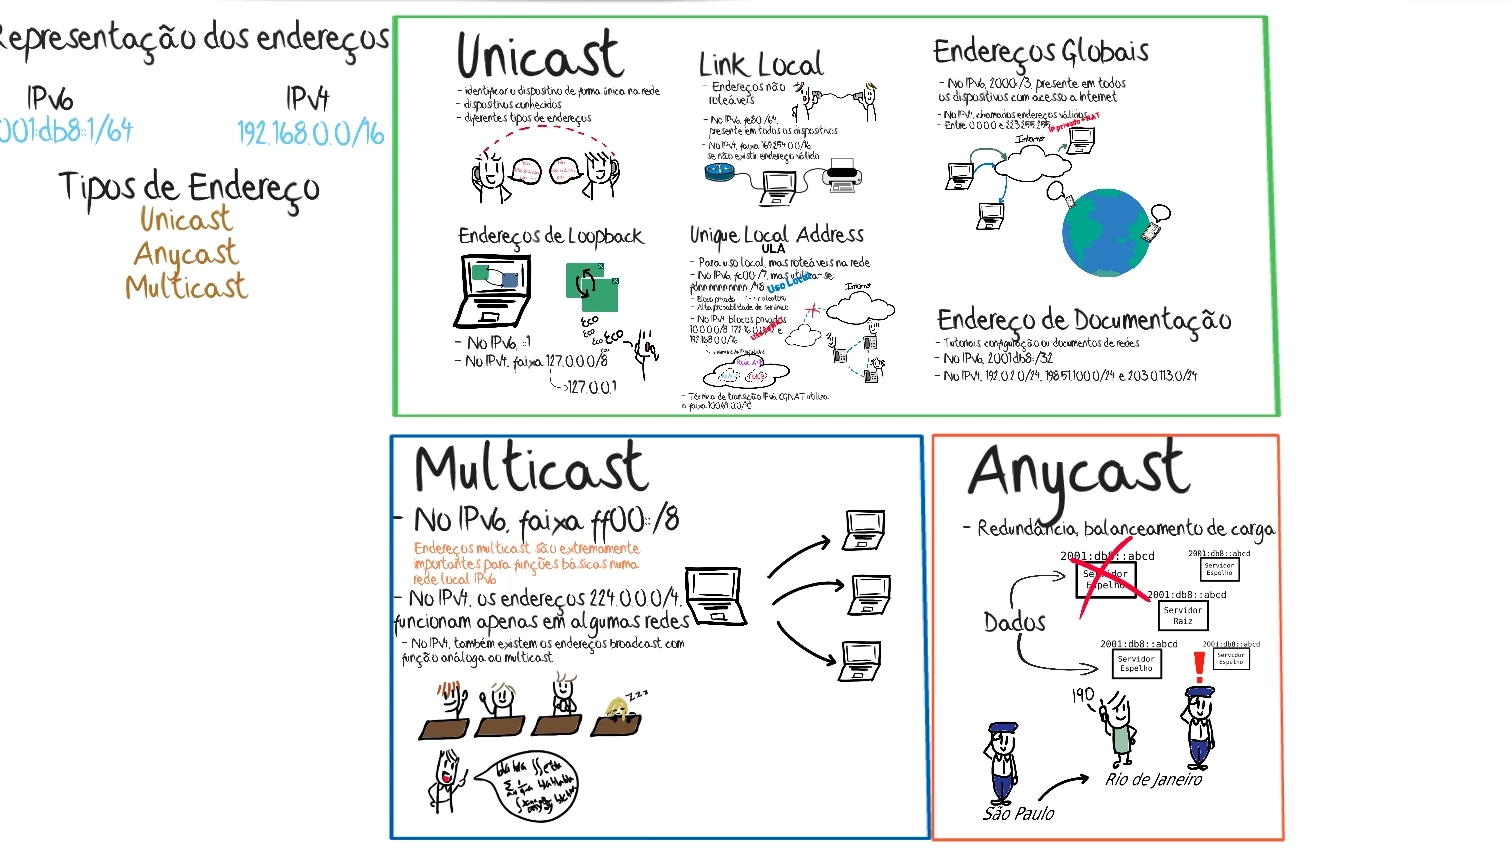 Representação dos endereços
IPv6
IPv4
001:db8::1/64
192.168.0.0/16
Tipos de Endereço
Unicast
Anycast
Multicast
Unicast
- identificar o dispositivo de forma única na rede
- dispositivos conhecidos
- diferentes tipos de endereços
Link Local
- Endereços não
roteáveis
- No IPv6, fe80::/64,
presente em todos os dispositivos
- No IPv4, faixa 169.254.0.0/16
se não existir endereço válido
Endereços Globais
- No IPv6, 2000::/3, presente em todos
os dispositivos com acesso a Internet
- No IPv4, chamados endereços válidos
- Entre 0.0.0.0 e 223.255.255
IP privado + NAT
Internet
Endereços de Loopback
Eco
Eco
Eco
Eco
- No IPv6, ::1
- No IPv4, faixa 127.0.0.0/8
127.0.0.1
Unique Local Address
ULA
- Para uso local, mas roteáveis na rede
- No IPv6, fc00::/7, mas utiliza-se
/48
Uso Local
- Bloco privado
- Alta probabilidade de ser único
- No IPv4 blocos privados
10.0.0.0/8 172.16
e
192.168.0.0/16
Internet
Rede A+B
- Técnica de transição IPv6 CGNAT utiliza
a faixa 100.64.0.0/10
Endereço de Documentação
- Tutoriais configuração ou documentos de redes
- No IPv6, 2001:db8::/32
- No IPv4, 192.0.2.0/24, 198.51.100.0/24 e 203.0.113.0/24
Multicast
- No IPv6, faixa ff00::/8
Endereços multicast são extremamente
importantes para funções básicas numa
rede local IPv6
- No IPv4, os endereços 224.0.0.0/4,
funcionam apenas em algumas redes
- No IPv4, também existem os endereços broadcast com
função análoga ao multicast
zzz
bla bla
Anycast
- Redundância, balanceamento de carga
2001:db8::abcd
Servidor
Espelho
2001:db8::abcd
Servidor
Espelho
2001:db8::abcd
Servidor
Raiz
Dados
2001:db8::abcd
Servidor
Espelho
2001:db8::abcd
Servidor
Espelho
!
190
Rio de Janeiro
São Paulo